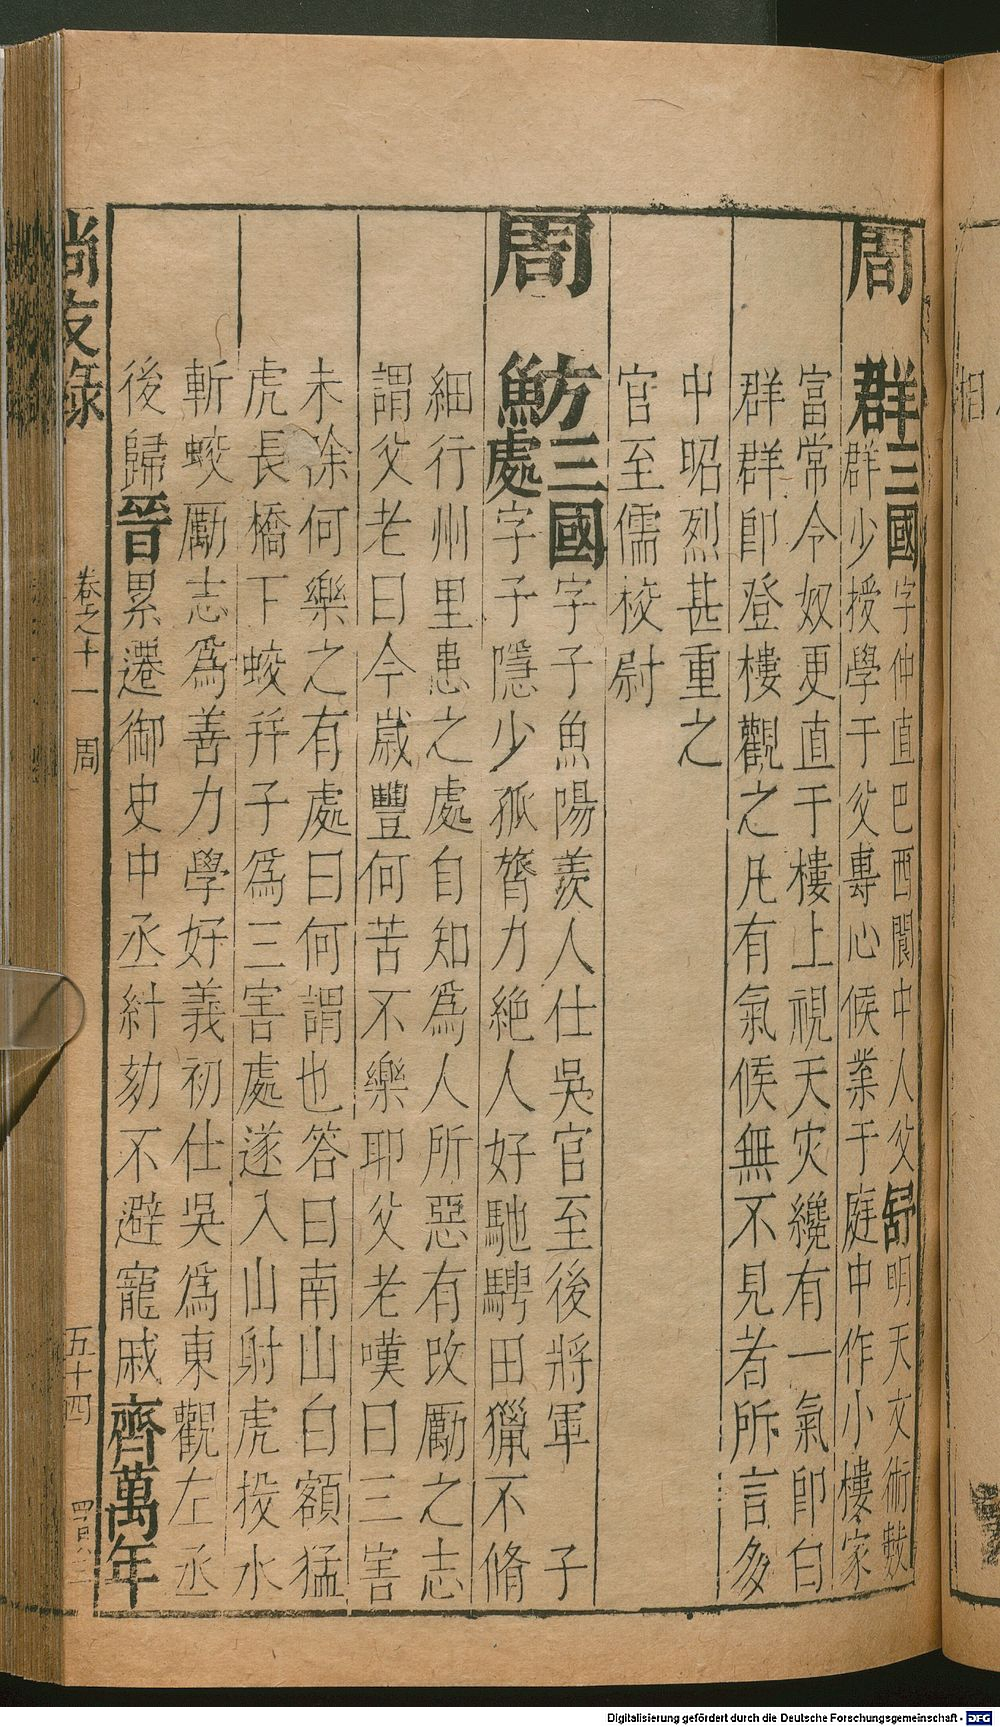 周群三國字仲直巴西閬中人父舒明天文術數
群少授學于父專心候業于庭中作小樓家
富常令奴更直于樓上視天灾纔有一氣即白
群群即登樓觀之凡有氣候無不見者所言多
中昭烈甚重之
官至儒校尉
周魴三國字子魚陽羨人仕吳官至後將軍子
處字子隱少孤膂力絶人好馳騁田獵不脩
細行州里患之處自知爲人所惡有改勵之志
謂父老曰今歲豐何苦不樂耶父老嘆曰三害
未除何樂之有處曰何謂也答曰南山白額猛
虎長橋下蛟幷子爲三害處遂入山射虎投水
斬蛟勵志爲善力學好義初仕吳爲東觀左丞
後歸晉累遷御史中丞紏劾不避寵戚齊萬年
尚友錄
卷之十一 周
五十四
Digitalisierung gefördert durch die Deutsche Forschungsgemeinschaft - DFG